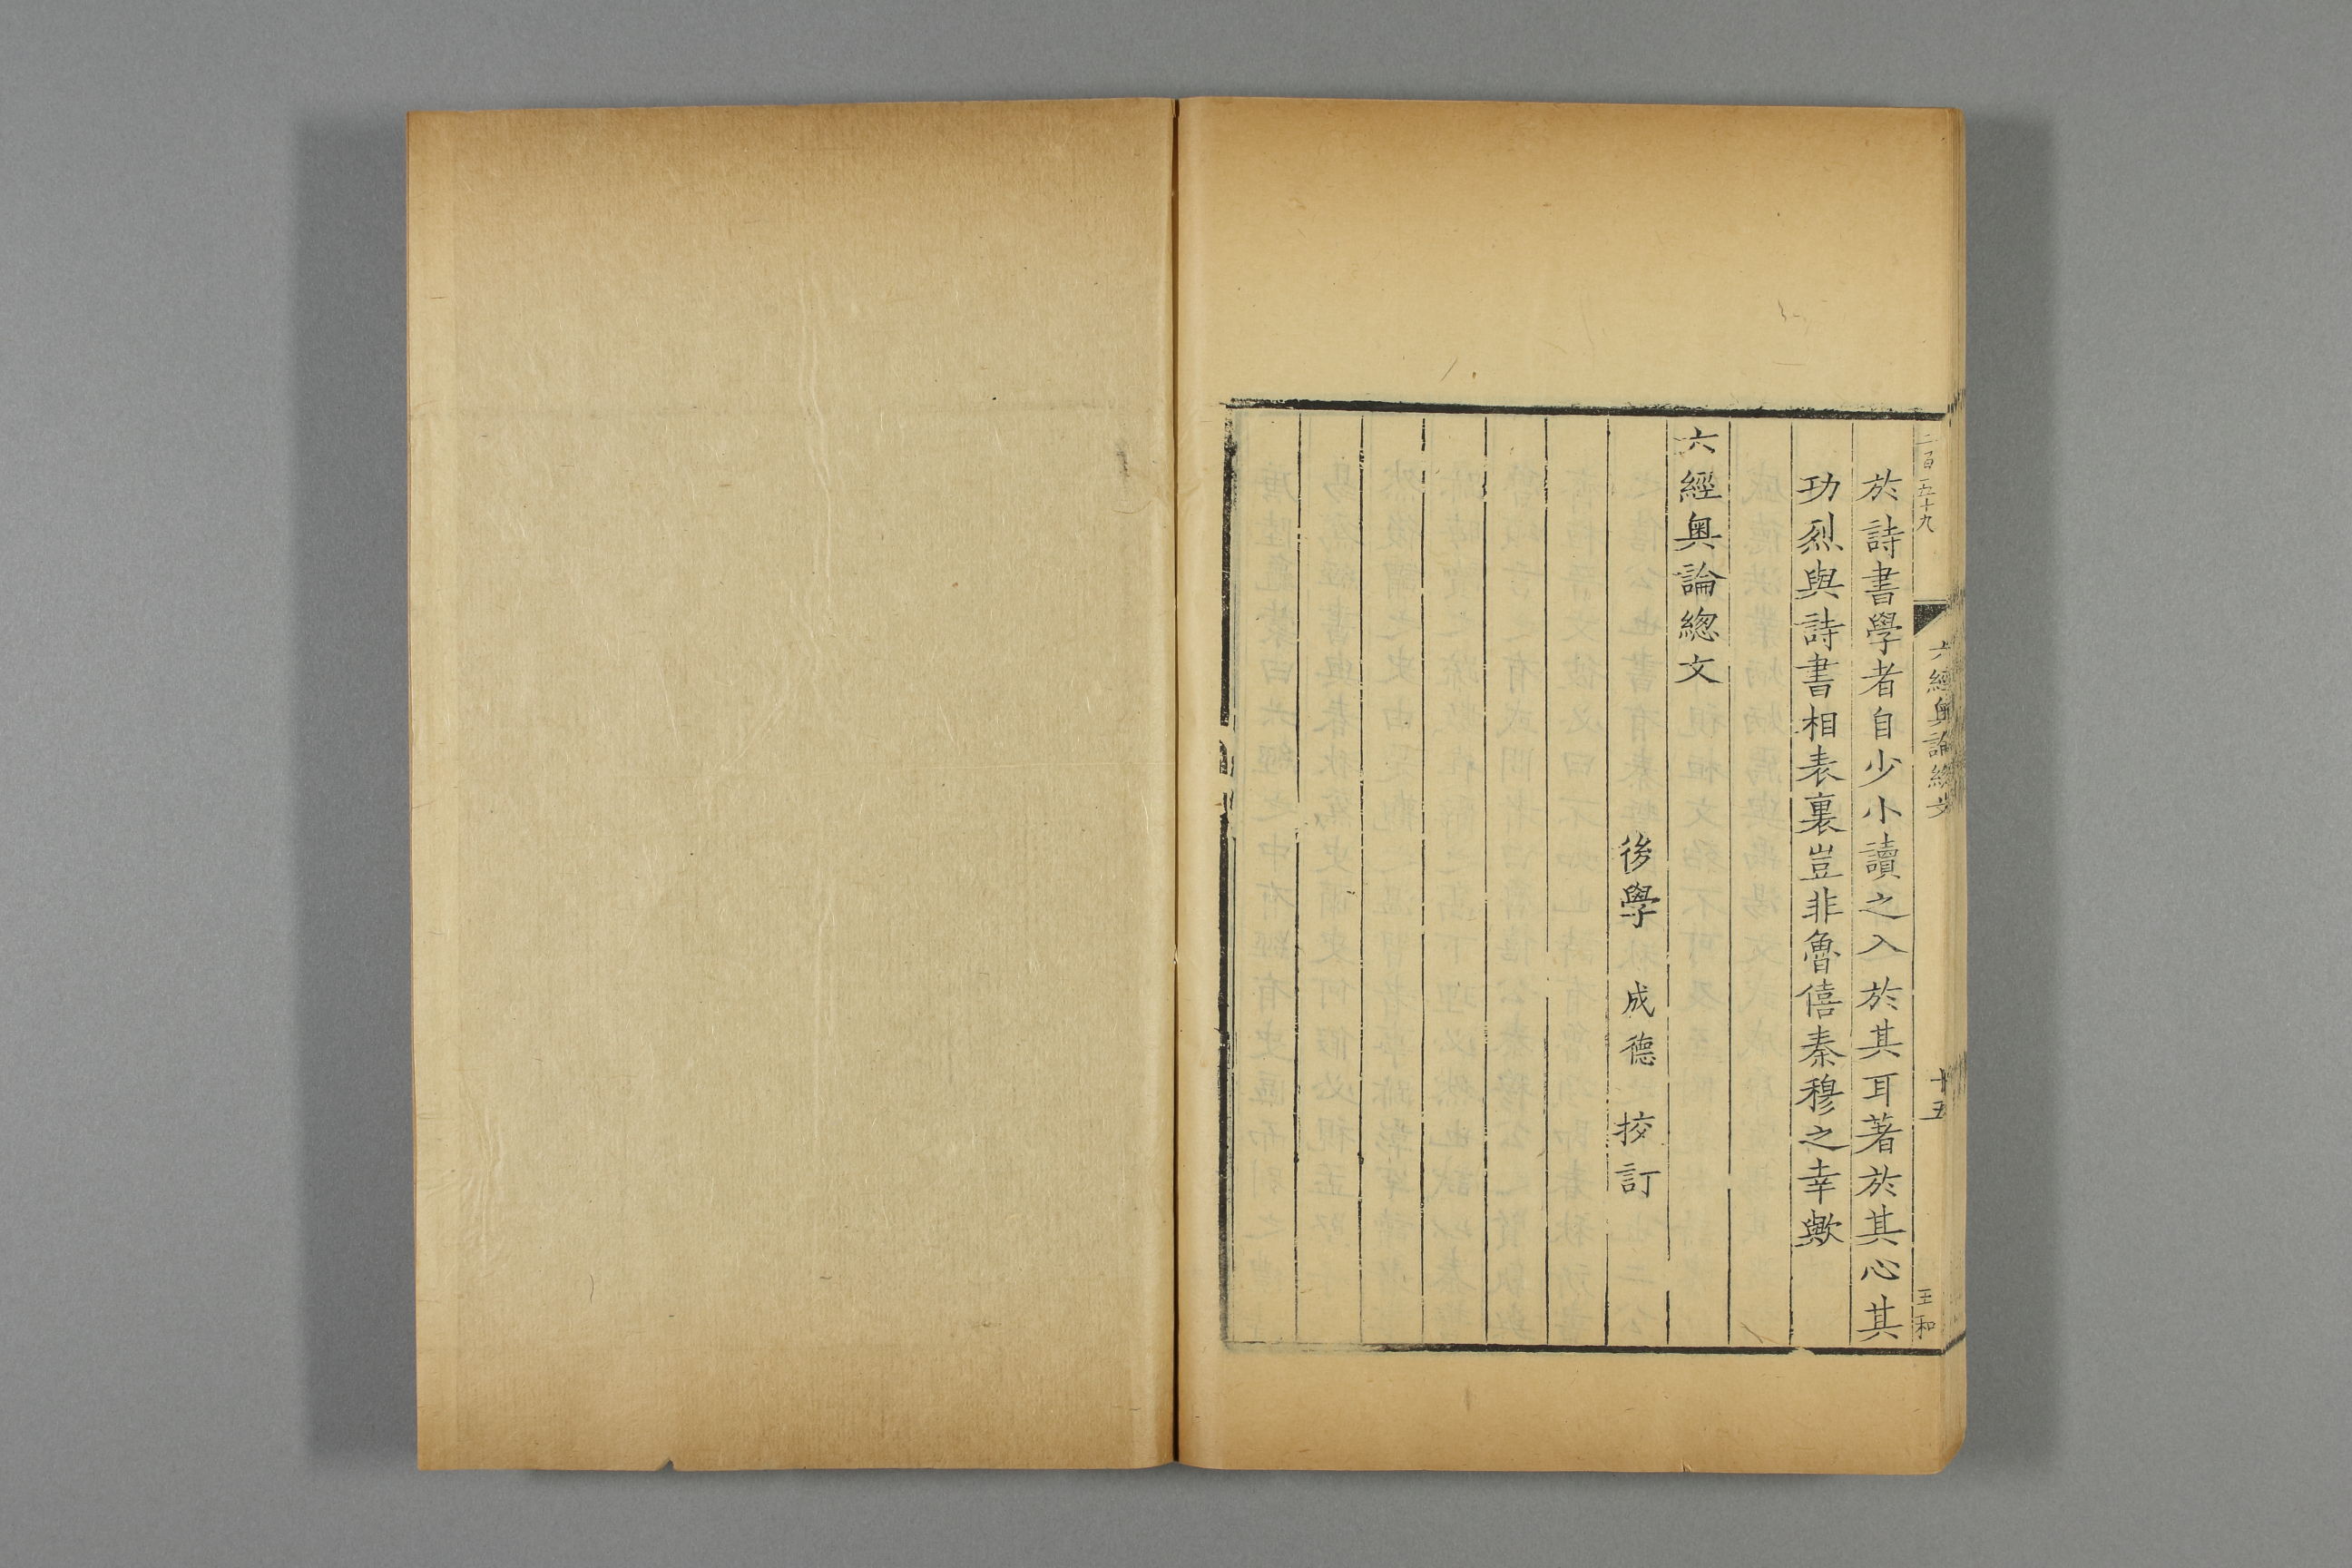 二百五十九
六經奥論緫文
十五
王和
於詩書學者自少小讀之入於其耳著於其心其
功烈與詩書相表裏豈非魯僖秦穆之幸歟
六經奥論緫文
後學 成德 挍訂